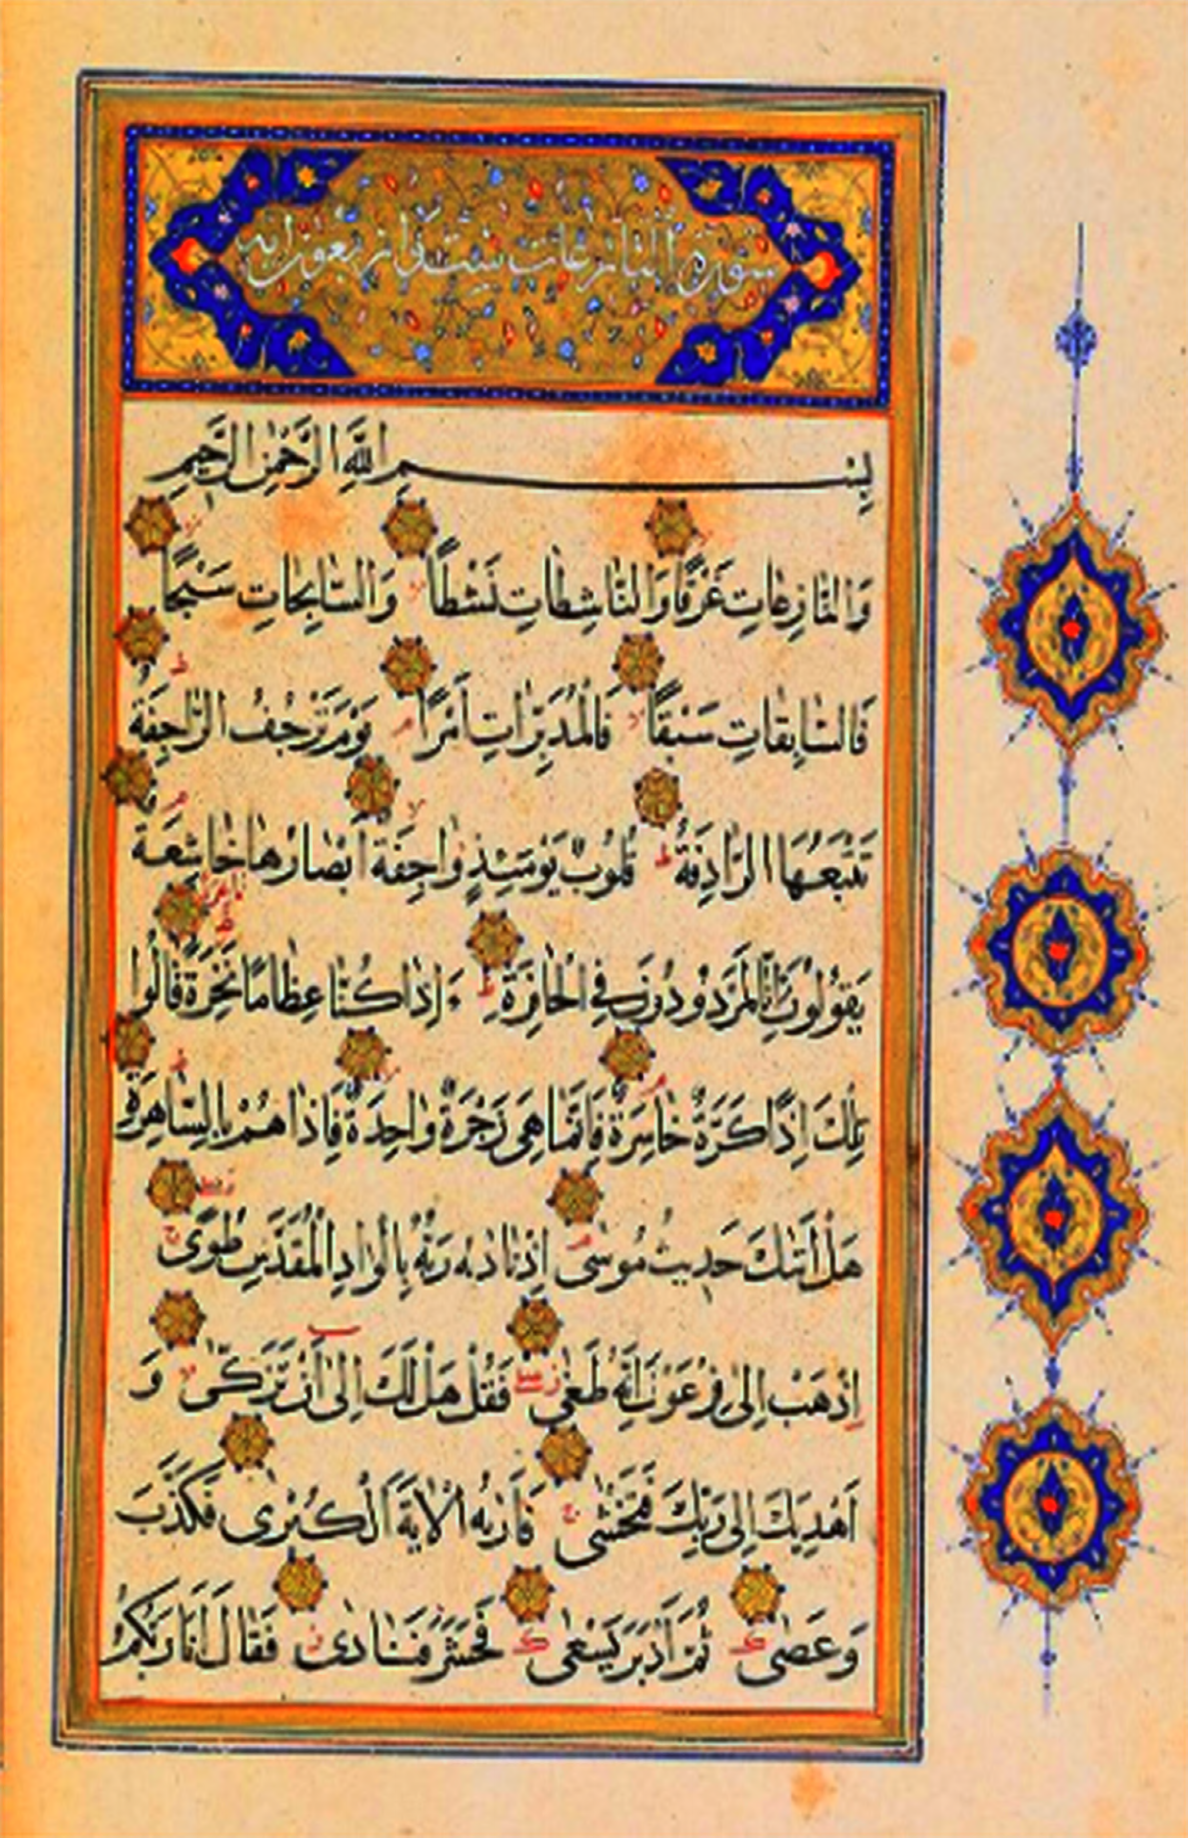 سورة النازعات ست و اربعون آیة
بِسْمِ اللَّهِ الرَّحْمٰنِ الرَّحِيمِ
وَالنَّازِعَاتِ غَرْقًا وَالنَّاشِطَاتِ نَشْطًا وَالسَّابِحَاتِ سَبْحًا
فَالسَّابِقَاتِ سَبْقًا فَالْمُدَبِّرَاتِ أَمْرًا يَوْمَ تَرْجُفُ الرَّاجِفَةُ
تَتْبَعُهَا الرَّادِفَةُ قُلُوبٌ يَوْمَئِذٍ وَاجِفَةٌ أَبْصَارُهَا خَاشِعَةٌ
يَقُولُونَ ءَإِنَّا لَمَرْدُودُونَ فِي الْحَافِرَةِ ءَإِذَا كُنَّا عِظَامًا نَخِرَةً قَالُوا
تِلْكَ إِذًا كَرَّةٌ خَاسِرَةٌ فَإِنَّمَا هِيَ زَجْرَةٌ وَاحِدَةٌ فَإِذَا هُمْ بِالسَّاهِرَةِ
هَلْ أَتٰىكَ حَدِيثُ مُوسٰى إِذْ نَادٰىهُ رَبُّهُ بِالْوَادِ الْمُقَدَّسِ طُوًى
اِذْهَبْ إِلٰى فِرْعَوْنَ إِنَّهُ طَغٰى فَقُلْ هَلْ لَكَ إِلٰى أَنْ تَزَكّٰى وَ
أَهْدِيَكَ إِلٰى رَبِّكَ فَتَخْشٰى فَأَرٰىهُ الْآيَةَ الْكُبْرٰى فَكَذَّبَ
وَعَصٰى ثُمَّ أَدْبَرَ يَسْعٰى فَحَشَرَ فَنَادٰى فَقَالَ أَنَا رَبُّكُمُ